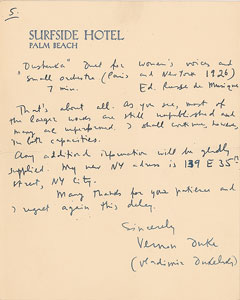 5.
SURFSIDE HOTEL
PALM BEACH
"Dushenka" Duet for women's voices and
small orchestra (Paris and New York 1926)
7 min. Ed. Russe de Musique
That's about all. As you see, most of
the larger works are still unpublished and
many are unperformed. I shall continue, however,
in both capacities.
Any additional information will be gladly
supplied. My new NY adress is 139 E 35th
street, NY City.
Many thanks for your patience and
I regret again this delay.
Sincerely
Vernon Duke
(Vladimir Dukelsky)